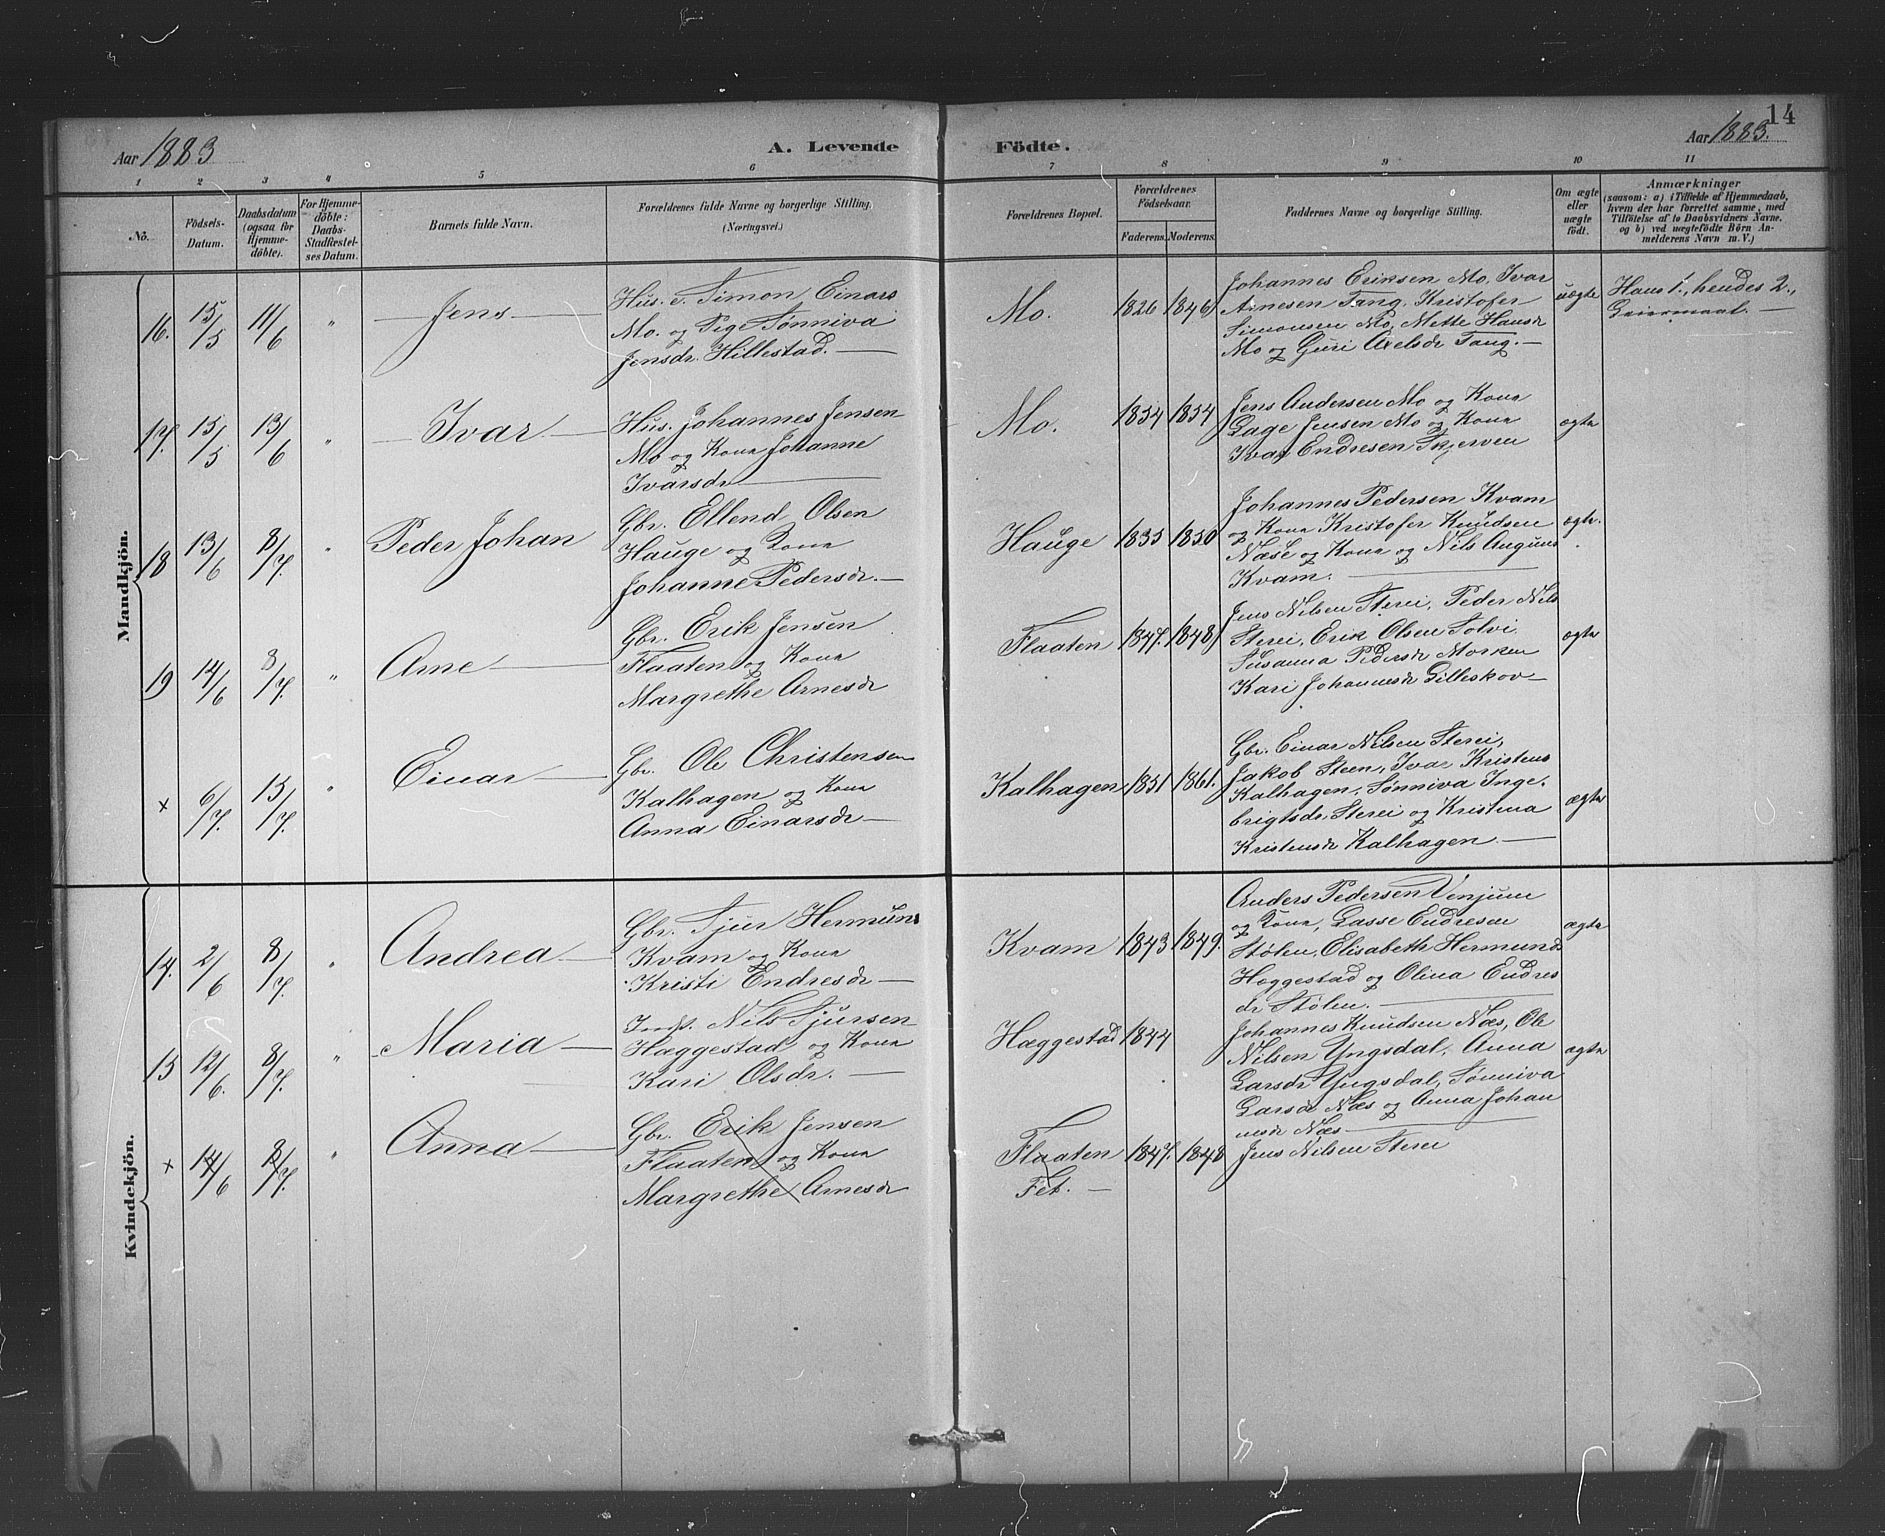 14
Aar 1883
A. Levende
Födte.
Aar 1883.
1 2 3 4 5 6 7 8 9 10 11
No.
Födsels-
Datum.
Daabsdatum
(ogsaa for
Hjemme-
döbte).
For Hjemme-
döbte:
Daabs-
Stadfæstel-
ses Datum.
Barnets fulde Navn.
Forældrenes fulde Navne og borgerlige Stilling.
(Næringsvei.)
Forældrenes Bopæl.
Forældrenes
Födselsaar.
Faderens. Moderens.
Faddernes Navne og borgerlige Stilling.
Om ægte
eller
uægte
födt.
Anmærkninger
(saasom: a) i Tilfælde af Hjemmedaab,
hvem der har forrettet samme, med
Tilföielse af to Daabsvidners Navne,
og b) ved uægtefödte Börn An-
melderens Navn m. V.)
Mandkjön.
16. 15/5 11/6 " Jens
Hus. e. Simon Einars
Mo. og Pige Sønniva
Jensdr. Hillestad.
Mo. 1826 1846
Johannes Eriksen Mo, Ivar
Arnesen Tang, Kristofer
Simonsen Mo, Mette Hansdr
Mo og Guri Axelsdr Tang.
uægte
Hans 1., hendes 2.,
Leiermaal.
17. 15/5 13/6 " Ivar
Hus. Johannes Jensen
Mo og Kona Johanne
Ivarsdr
Mo. 1854 1854
Jens Andersen Mo og Kona
Lage Jensen Mo og Kona
Ivar Endresen Skjerven
ægte
18 13/6 8/7. " Peder Johan
Gbr. Ellend Olsen
Hauge og Kona
Johanne Pedersdr.
Hauge 1835 1850
Johannes Pedersen Kvam
og Kona Kristofer Knudsen
Næse og Kona og Nils Anguns
Kvam.
ægte.
19 14/6 8/7. " Arne
Gbr. Erik Jensen
Flaaten og Kona
Margrethe Arnesdr
Flaaten 1847. 1848
Jens Nilsen Sterei, Peder Nils
Sterei, Erik Olsen Solvi
Susanna Pedersdr Morken
Kari Johannesdr Gilleskov
ægte
x 6/7. 15/7. " Einar
Gbr. Ole Christensen
Kalhagen og Kona
Anna Einarsdr
Kalhagen 1851 1861.
Gbr. Einar Nilsen Sterei,
Jakob Steen, Ivar Kristens
Kalhagen, Sønniva Inge-
brigtsdr. Sterei og Kristina
Kristensdr Kalhagen.
ægte
Kvindekjön.
14. 2/6 8/7. " Andrea
Gbr. Sjur Hermuns
Kvam og Kona
Kristi Endresdr
Kvam 1843 1849.
Anders Pedersen Venjum
og Kona, Lasse Endresen
Stølen, Elisabeth Hermunds
Hæggestad og Olina Endres
dr Stølen.
ægte
15 12/6. 8/7. " Maria
Nils Sjursen
Hæggestad og Kona
Kari Olsdr.
Hæggestad 1844
Johannes Knudsen Næs, Ole
Nilsen Yngsdal, Anna
Larsdr Yngsdal, Sønniva
Larsdr Næs og Anna Johan
nesdr Næs
ægte
x 14/6 8/7. " Anna
Gbr. Erik Jensen
Flaaten og Kona
Margrethe Arnesdr
Flaaten 1847. 1848
Fet.
Jens Nilsen Sterei